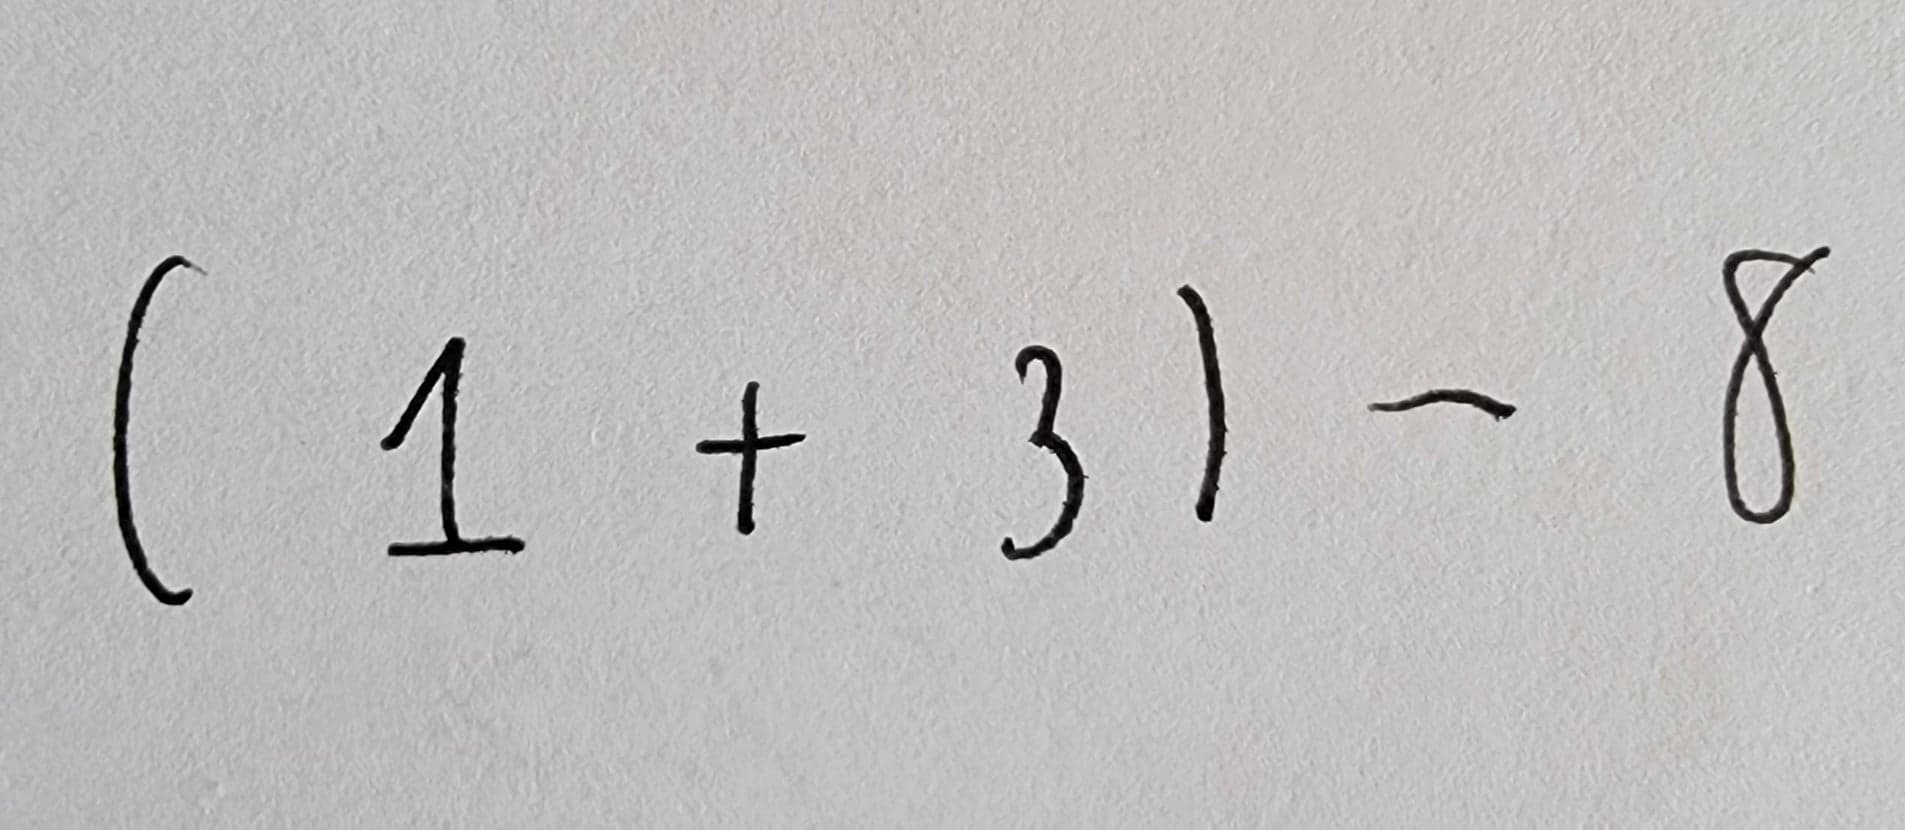 ( 1 + 3 ) - 8